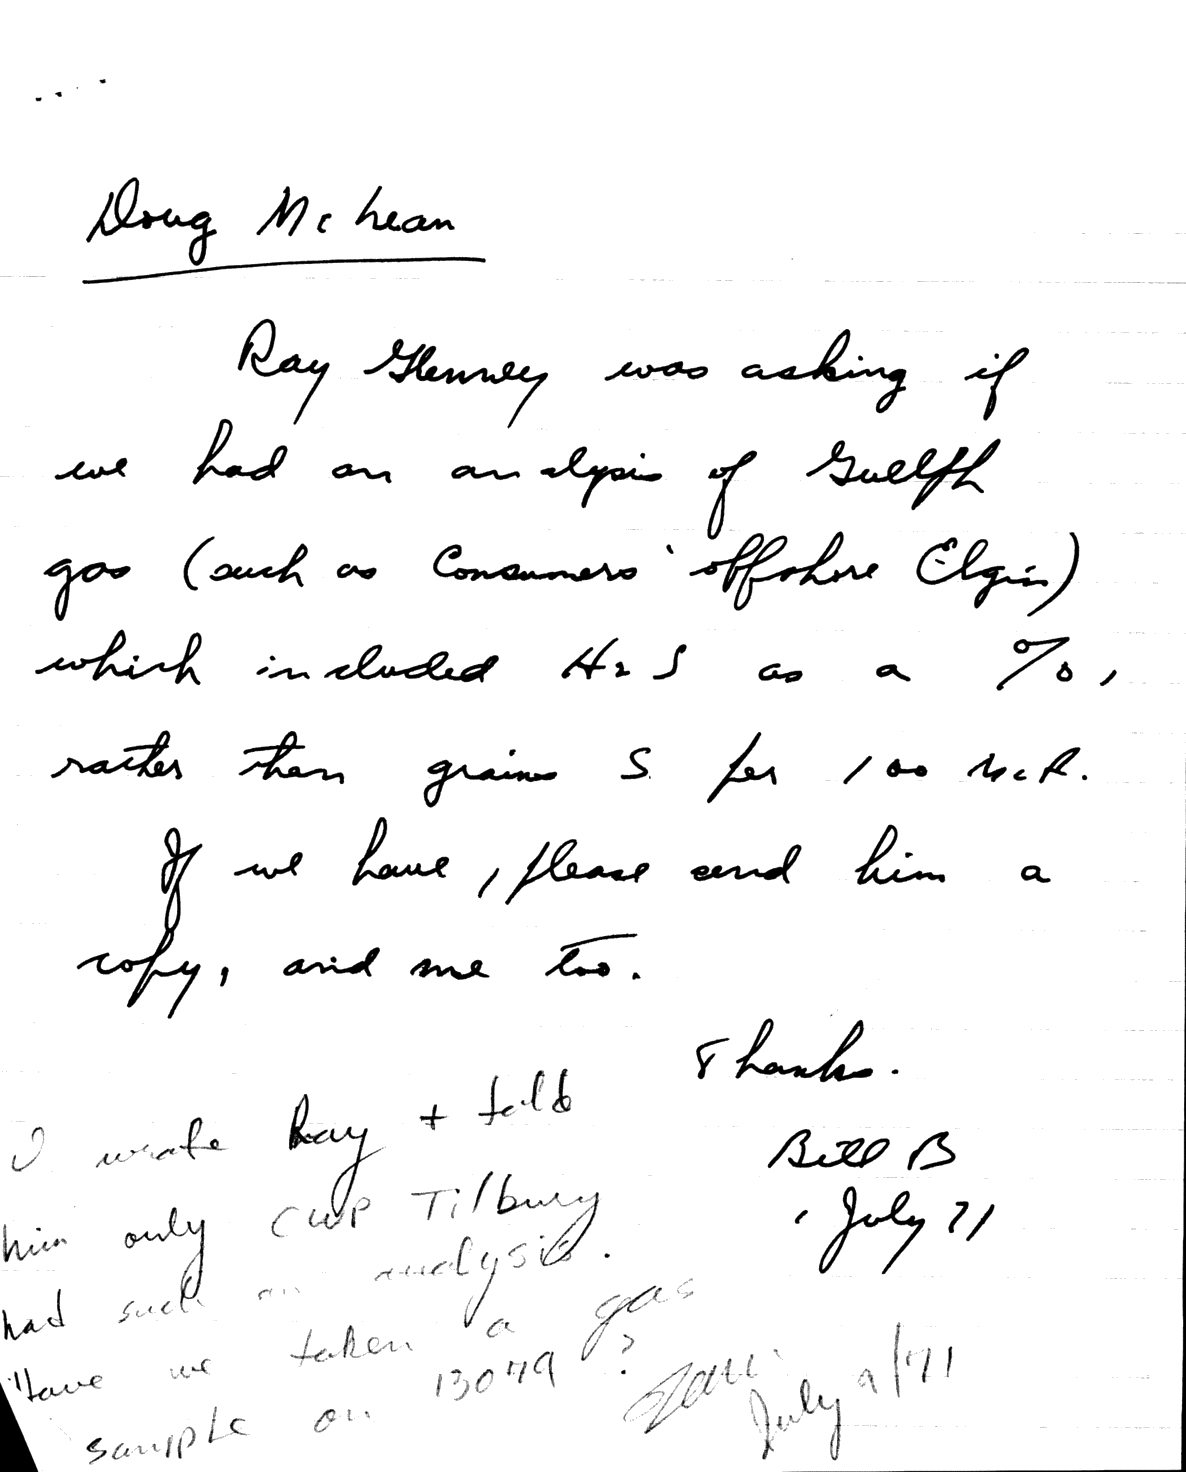 Doug McLean
Ray Glenney was asking if
we had an analysis of Guelph
gas (such as Consumers' offshore Elgin)
which included H2S as a %,
rather than grains S per 100 Mcf.
If we have, please send him a
copy, and me too.
Thanks.
Bill B
July 71
I wrote Ray + told
him only CWP Tilbury
had such an analysis.
Have we taken a gas
sample on 13079?
July 9/71